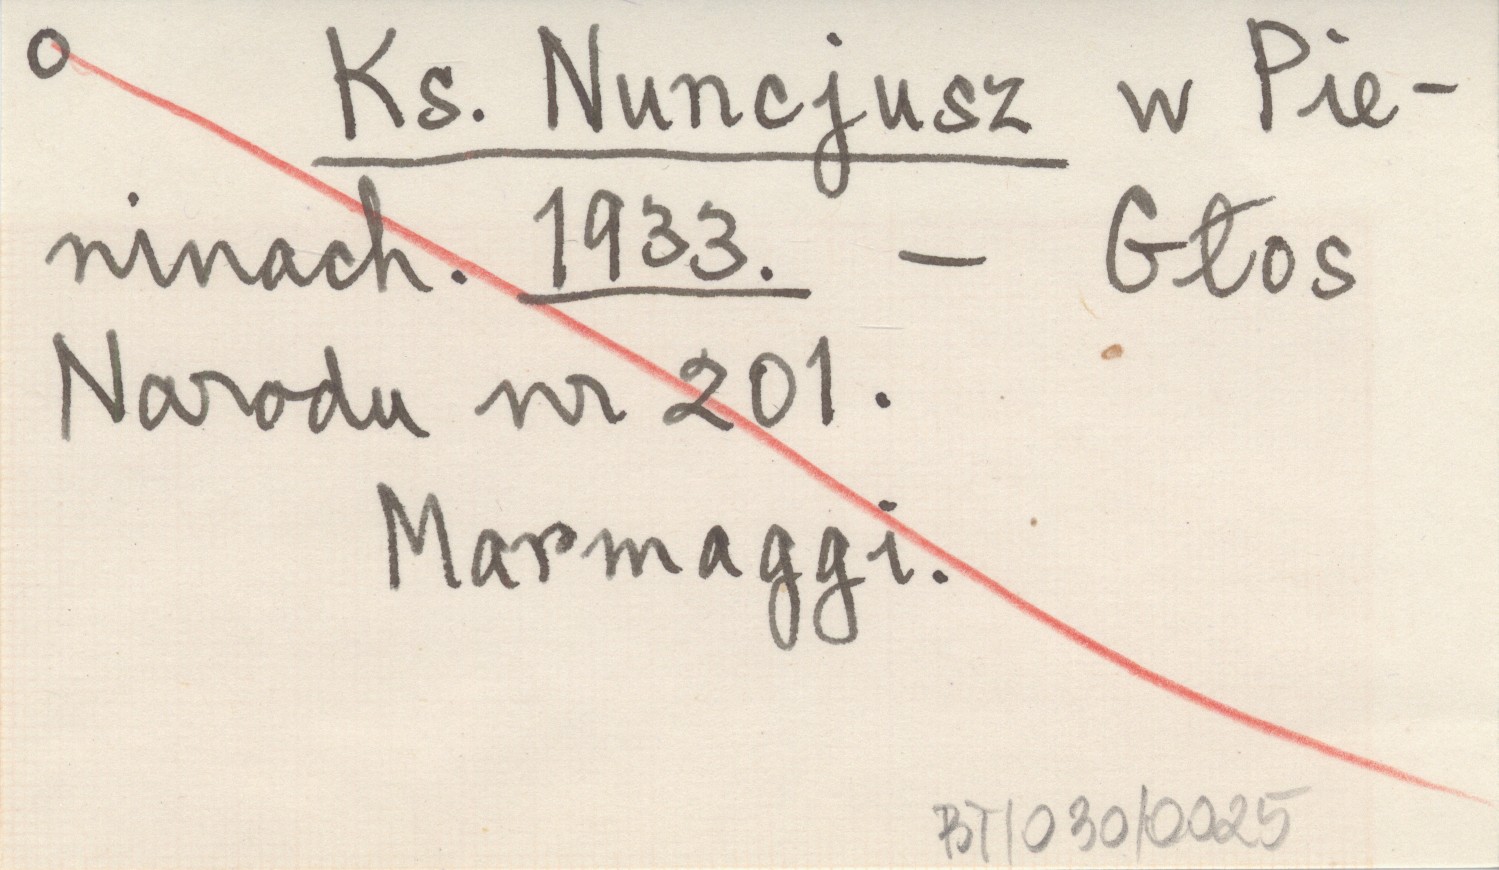 o Ks. Nuncjusz w Pie-
ninach. 1933. – Głos
Narodu nr 201.
Marmaggi.
BT/030/0025